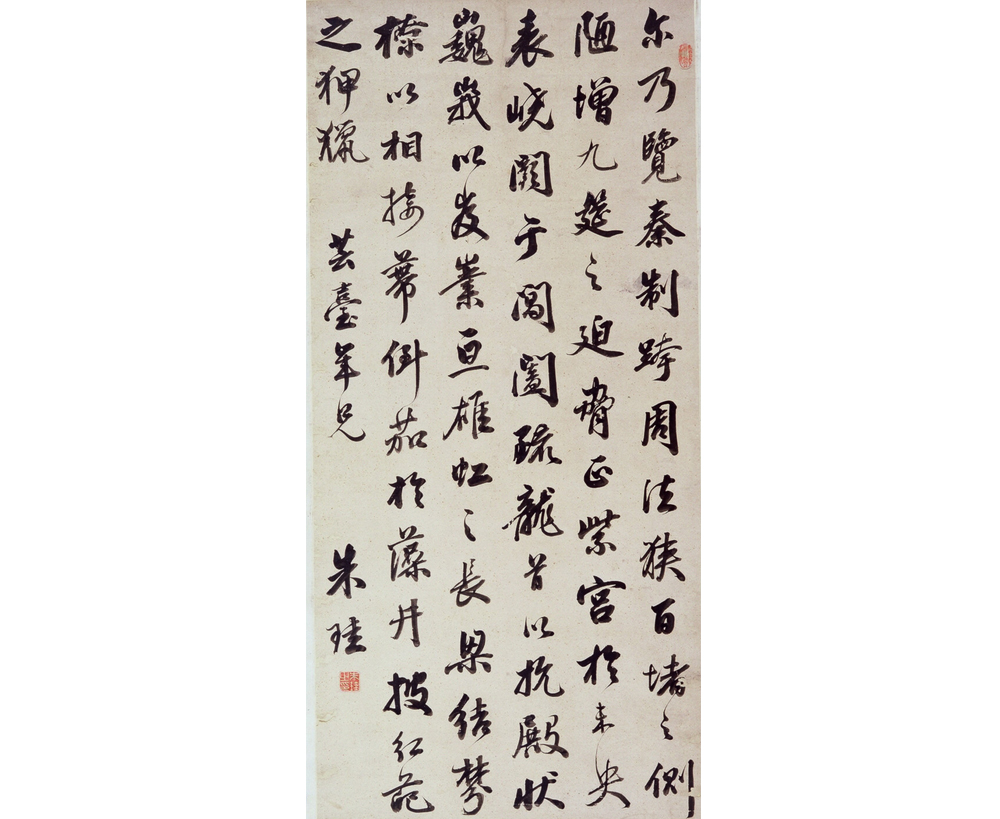 尔乃覽秦制跨周法狹百堵之側
陋增九筵之迫脅正紫宮於未央
表嶢闕于閶闔疏龍首以抗殿狀
巍峩以岌嶪亘雄虹之長梁結棼
橑以相接蔕倒茄於藻井披紅葩
之狎獵
芸臺年兄 朱珪